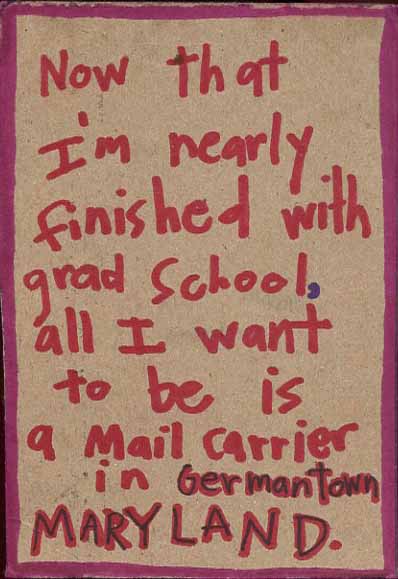 Now that
I'm nearly
finished with
grad School,
all I want
to be is
a Mail carrier
in Germantown
MARYLAND.